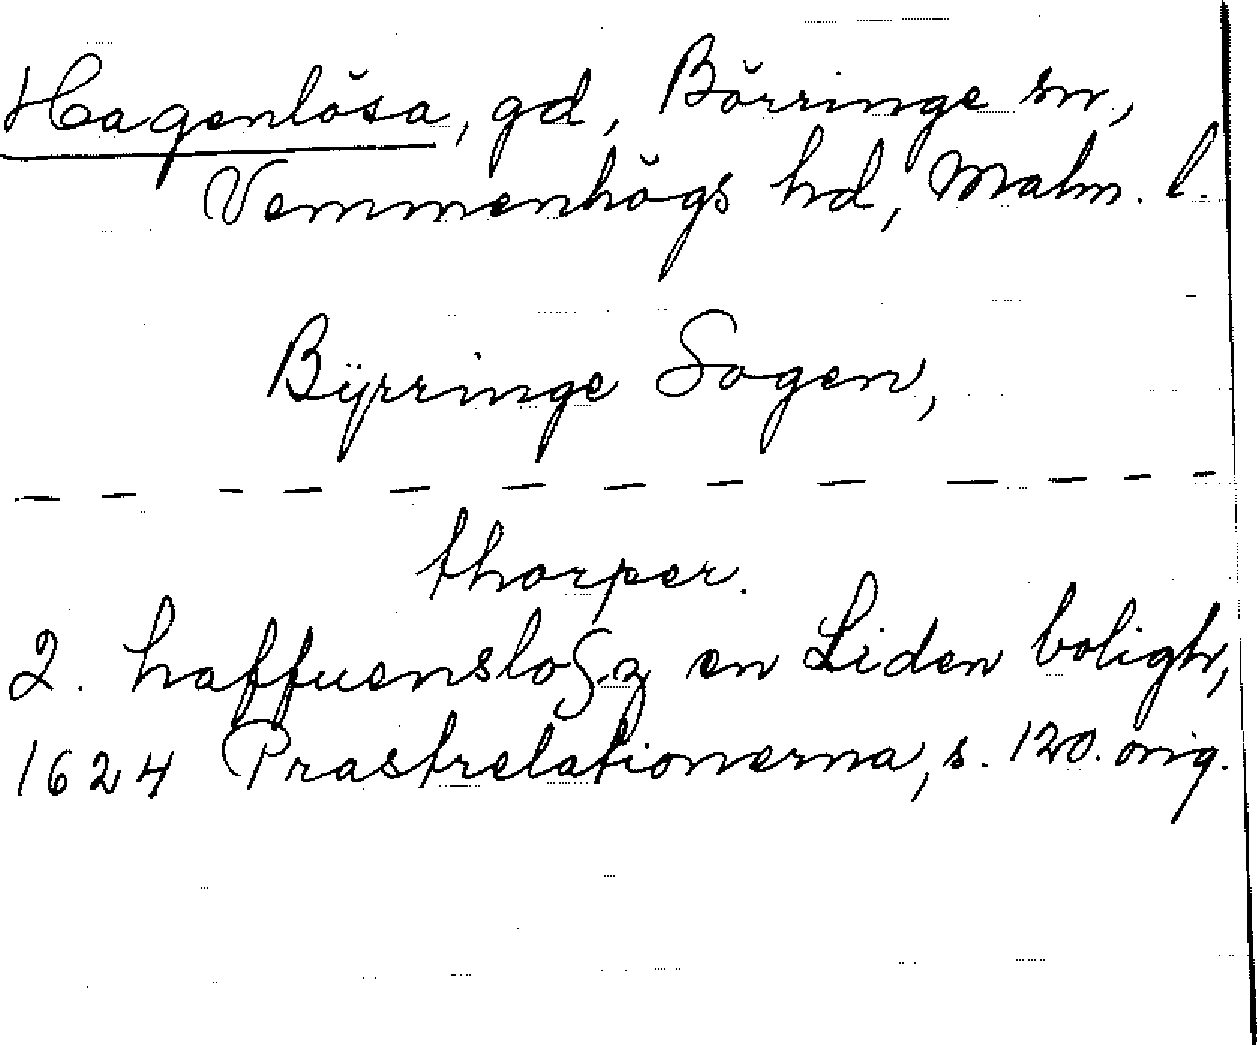 Hagenlösa, gd, Börringe sn,
Vemmenhögs hd, Malm. l.
Bÿrringe Sogen,
— — — — — — — — — — — — —
thorper.
2. haffuensloß.z en Liden boligh,
1624 Prastrelationerna, s. 120. orig.